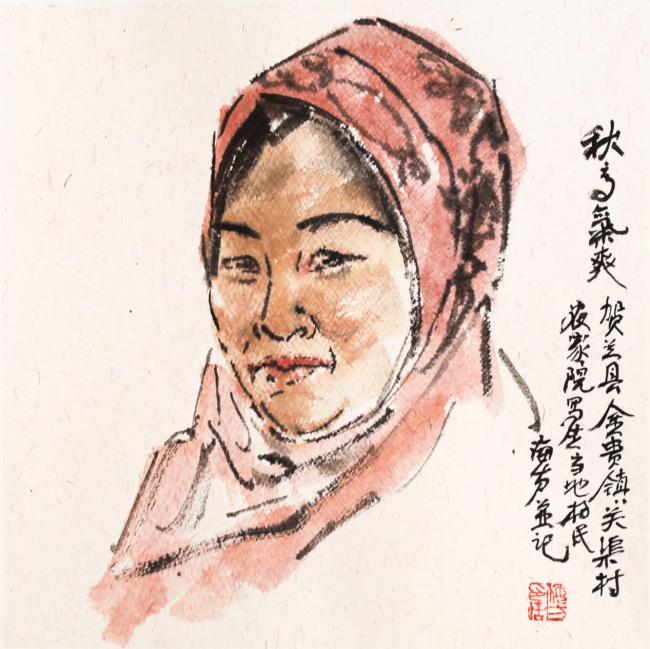 秋高氣爽
贺兰县金贵镇关渠村
农家院写生当地村民
南方並记